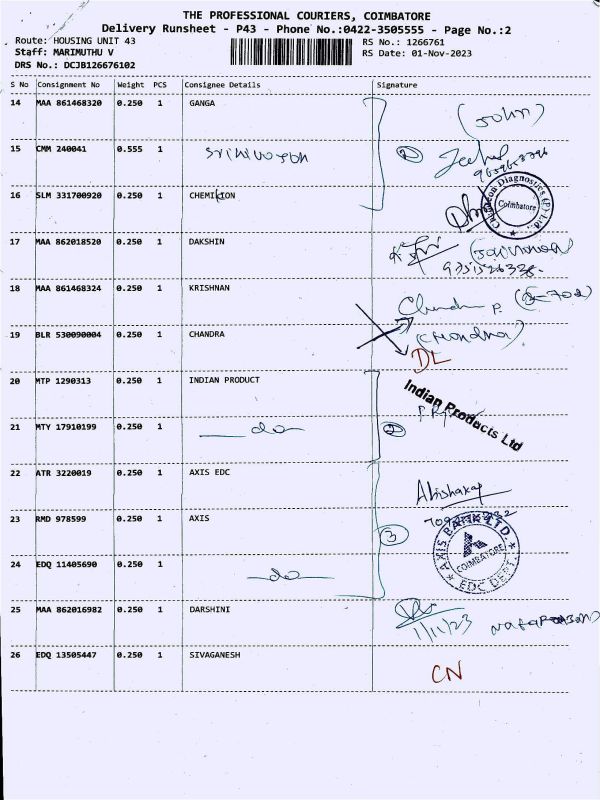 THE PROFESSIONAL COURIERS, COIMBATORE
Delivery Runsheet - P43 - Phone No.:0422-3505555 - Page No.:2
Route: HOUSING UNIT 43 RS No.: 1266761
Staff: MARIMUTHU V RS Date: 01-Nov-2023
DRS No.: DCJB126676102
S No Consignment No Weight PCS Consignee Details Signature
14 MAA 861468320 0.250 1 GANGA
(John)
15 CMM 240041 0.555 1
16 SLM 331700920 0.250 1
Diagnostics (P) Ltd. Coimbatore
17 MAA 862018520 0.250 1 DAKSHIN
18 MAA 861468324 0.250 1 KRISHNAN
Chandra P.
19 BLR 530090004 0.250 1 CHANDRA
(Chandra)
DL
20 MTP 1290313 0.250 1 INDIAN PRODUCT
Indian Products Ltd
21 MTY 17910199 0.250 1 do 2
22 ATR 3220019 0.250 1 AXIS EDC
23 RMD 978599 0.250 1 AXIS
3
AXIS BANK LTD. COIMBATORE EDC DEPT.
24 EDQ 11405690 0.250 1 do
25 MAA 862016982 0.250 1 DARSHINI
1/11/23
26 EDQ 13505447 0.250 1 SIVAGANESH
CN